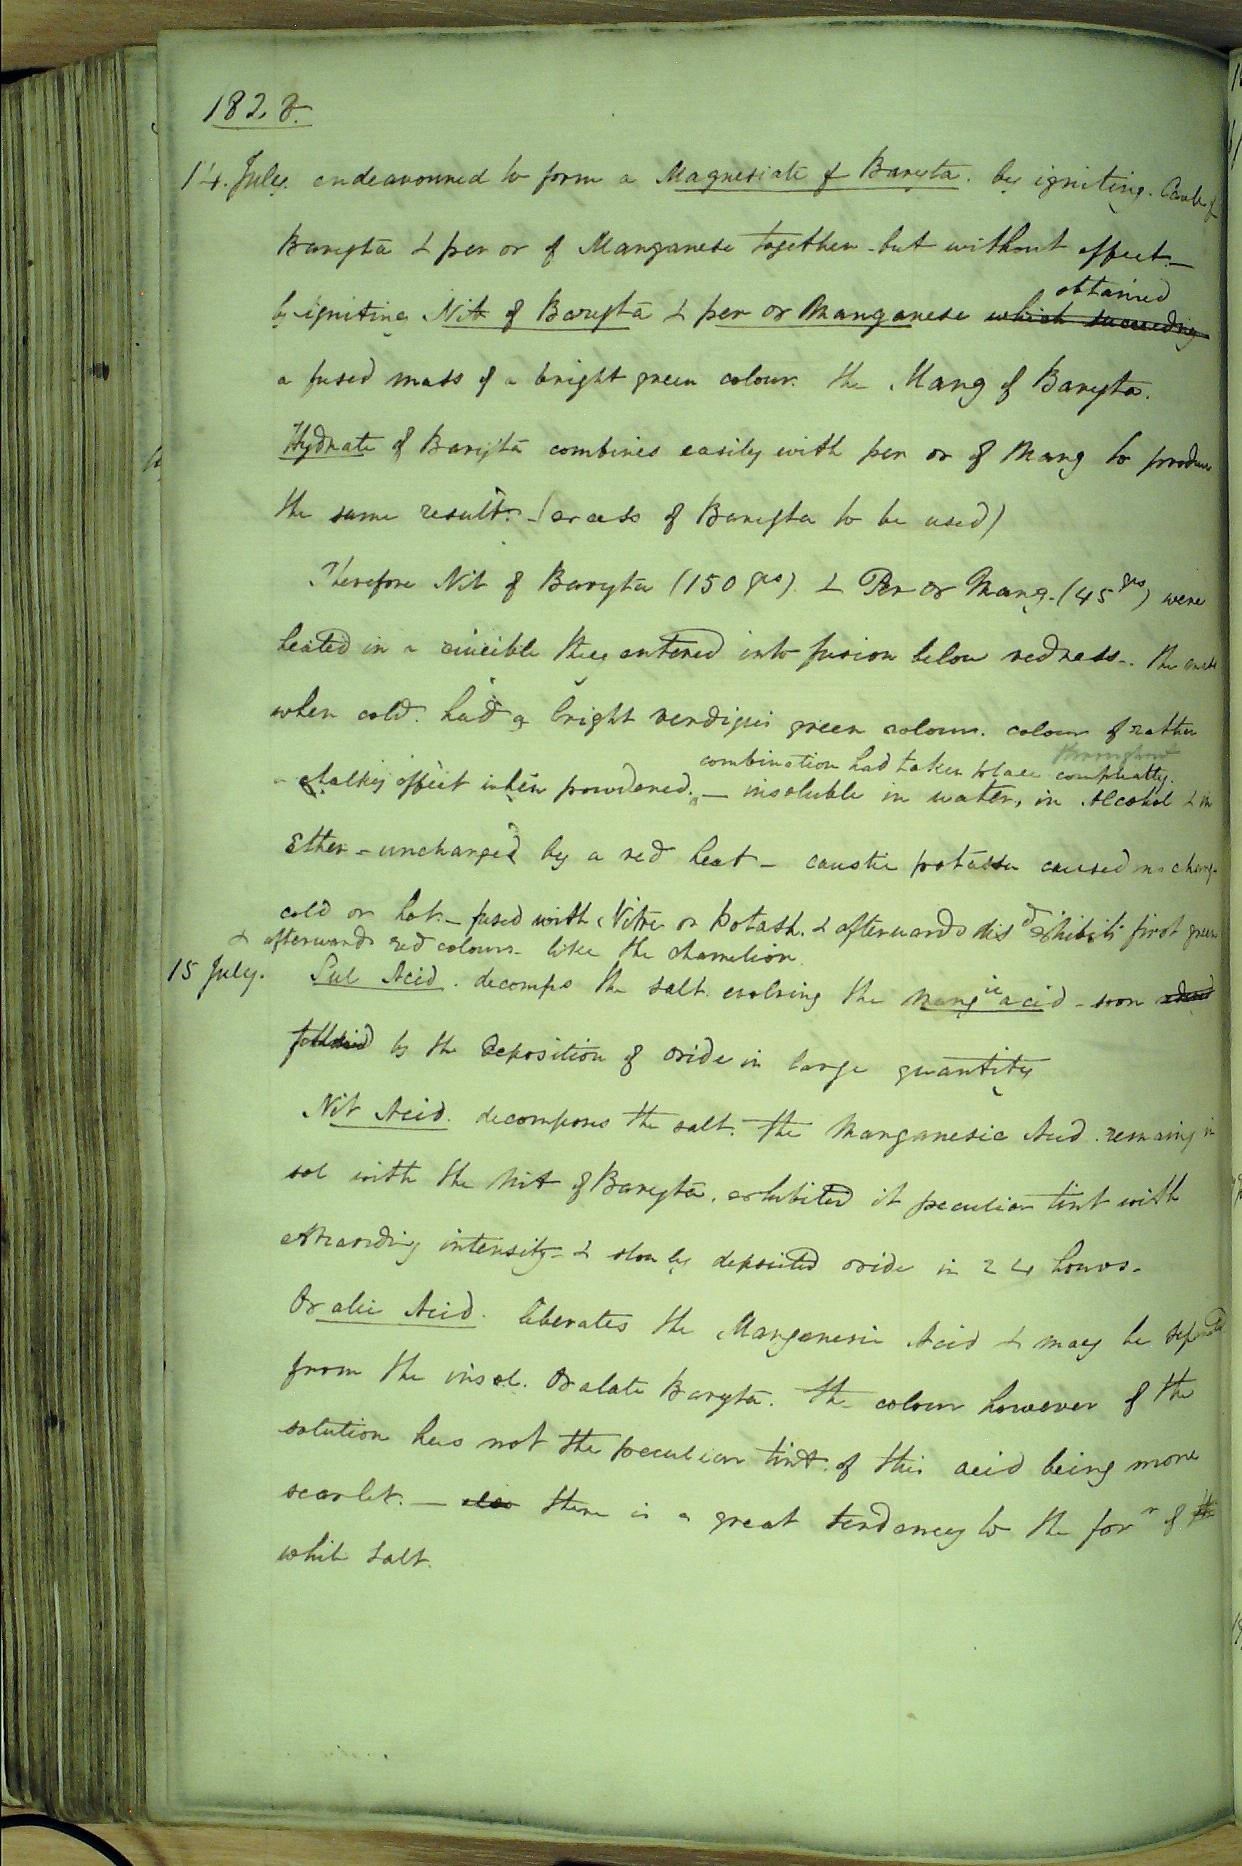 1828.
14. July. endeavoured to form a Magnesiate of Baryta. by igniting. Carb of
Baryta & per ox of Manganese together - but without effect. -
obtained
by igniting Nit of Baryta & per ox Manganese which succeeding
a fused mass of a bright green colour. the Mang of Baryta.
Hydrate of Baryta combines easily with per ox of Mang to produce
the same result. - (excess of Baryta to be used)
Therefore Nit of Baryta (150 grs) & Per ox Mang. (45 grs) were
heated in a crucible they entered into fusion below redness.. the mass
when cold. had a bright verdigris green colour. colour of rather
combination had taken place throughout compleatly.
a chalky effect when powdered. - insoluble in water, in Alcohol & in
Ether - unchanged by a red heat - caustic potassa caused no change
cold or hot. - fused with Nitre or Potash. & afterwards disd exhibits first green
& afterwards red colours - like the chamelion.
15 July. Sul Acid. decomps the salt. evolving the Mangic acid - soon
followed by the deposition of oxide in large quantity
Nit Acid. decomposes the salt. the Manganesic Acid. remaing in
sol with the Nit of Baryta, exhibited it peculiar tint with
extraording intensity - & slowly deposited oxide in 24 hours -
Oxalic Acid. liberates the Manganesic Acid & may be separated
from the insol. Oxalate Baryta. The colour however of the
solution has not the peculiar tint of this acid being more
scarlet. - also there is a great tendancy to the forn of the
white salt.